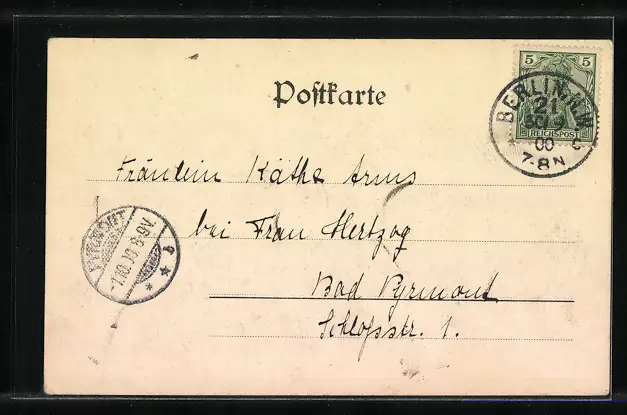 Postkarte
5 5
REICHSPOST
BERLIN
21
00
7-8N
Fräulein Käthe Arns
bei Frau Hertzog
PYRMONT
1.10.00 8-9V.
Bad Pyrmont
Schlossstr. 1.